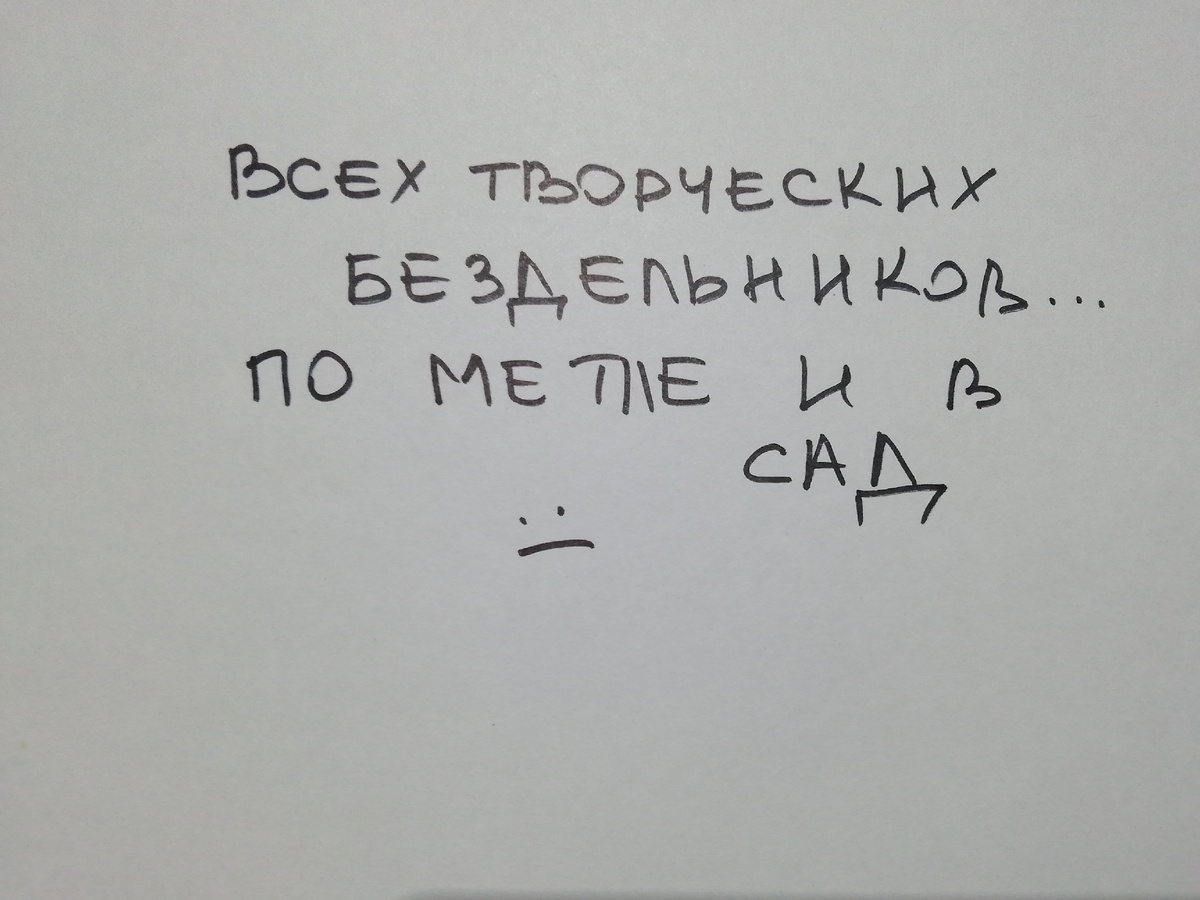 ВСЕХ ТВОРЧЕСКИХ
БЕЗДЕЛЬНИКОВ...
ПО МЕТЛЕ И В
САД